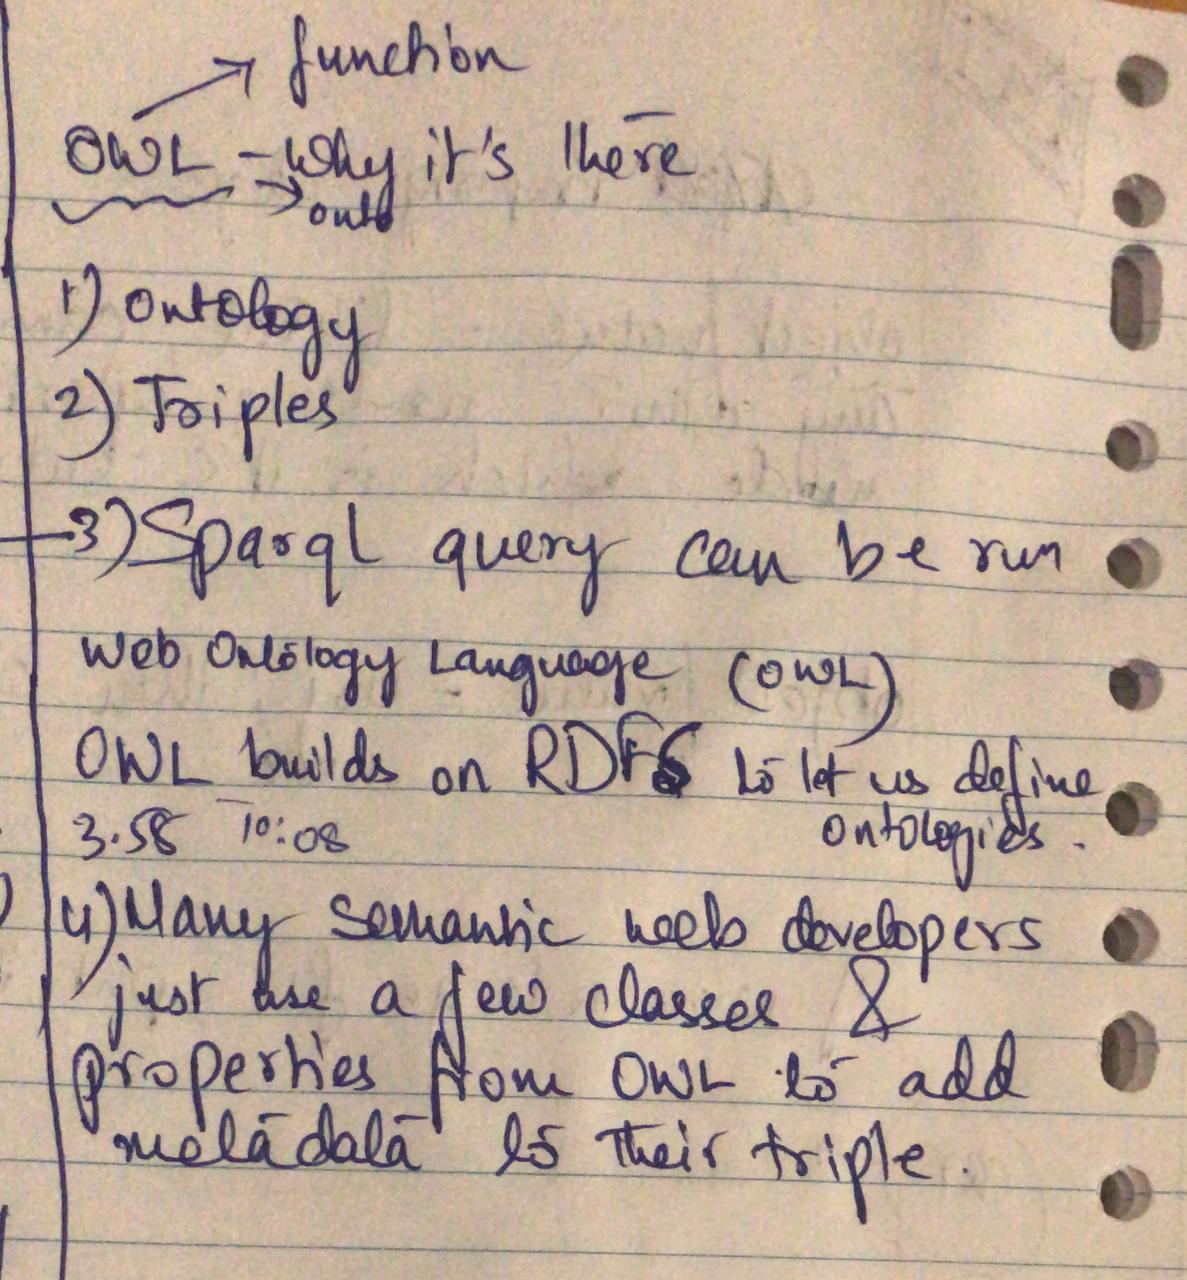 function
OWL - Why it's there
onto
1) Ontology
2) Triples
3) Sparql query can be run
Web Ontology Language (OWL)
OWL builds on RDFS to let us define
ontologies.
3.58 10:08
4) Many Semantic web developers
just use a few classes &
properties from OWL to add
metadata to their triple.